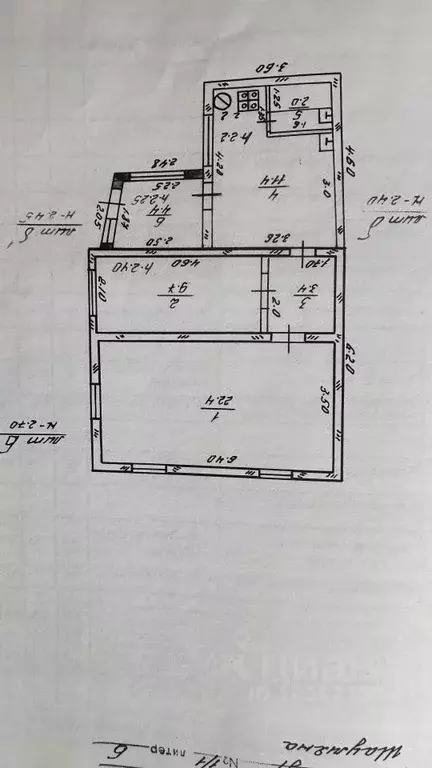 Шаумяна
№ 1/1 литер Б
лит Б
Н-2.70
6.40
1
22.4
3.50
6.20
2.10
2
9.7
h-2.40
4.60
2.0
3
3.4
1.70
лит б
Н-2.40
лит б'
Н-2.45
3.26
2.50
6
4.4
h-2.25
1.87
2.05
2.25
2.48
4
11.4
4.28
3.0
4.60
h-2.2
5
2.0
1.6
1.25
3.60